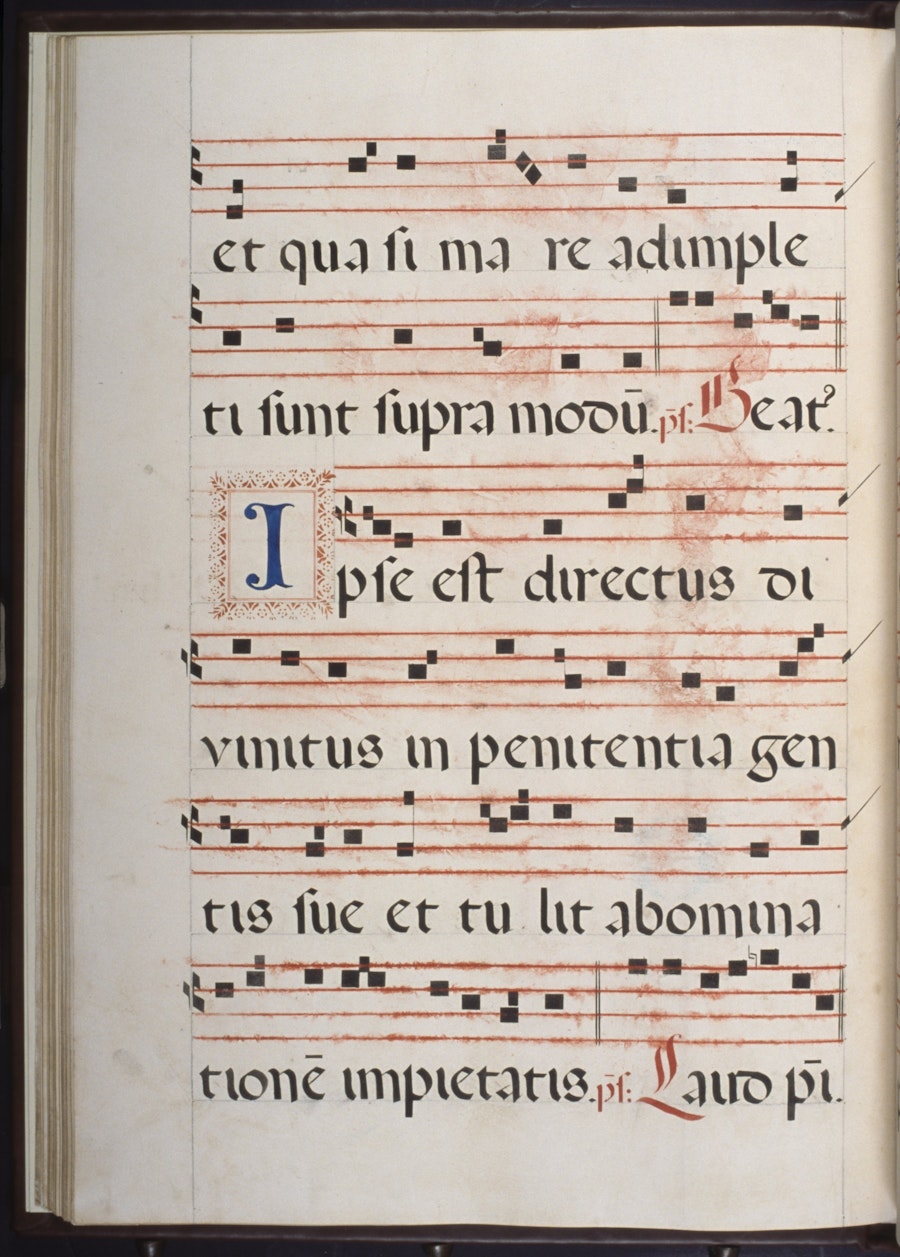 et qua si ma re adimple
ti sunt supra modū. ps̄: Beatꝰ.
Ipse est directus di
vinitus in penitentia gen
tis sue et tu lit abomina
tionē impietatis. ps̄: Laud p̄i.